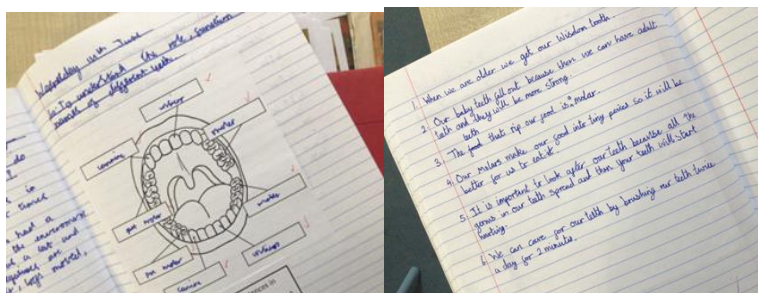 Wednesday 10th June
L.O. To understand the role, function
names of different teeth.
incisors
molar
canine
molar
pre molar
incisors
pre molar
canine
do
I
is
times
had a
the environment
a cat and
are
legs moved,
1. When we are older we get our Wisdom tooth.
2. Our baby teeth fall out because then we can have adult
teeth and they will be more strong.
teeth
3. The food that rip our food is a molar.
4. Our Molars make our food into tiny pieces so it will be
better for us to eat it.
5. It is important to look after our teeth because all the
germs in our teeth spread and then your teeth will start
hurting.
6. We can care for our teeth by brushing our teeth twice
a day for 2 minutes.